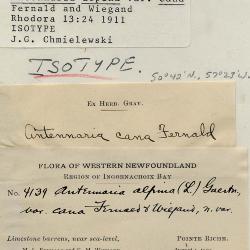 Antennaria alpina var. cana
Fernald and Wiegand
Rhodora 13:24 1911
ISOTYPE
J.G. Chmielewski
ISOTYPE.
50°42'N., 57°23'W.
Ex Herb. Gray.
Antennaria cana Fernald
FLORA OF WESTERN NEWFOUNDLAND
Region of Ingornachoix Bay
No. 4139 Antennaria alpina (L.) Gaertn.
var. cana Fernald & Wiegand, n. var.
Limestone barrens, near sea-level,
Pointe Riche.